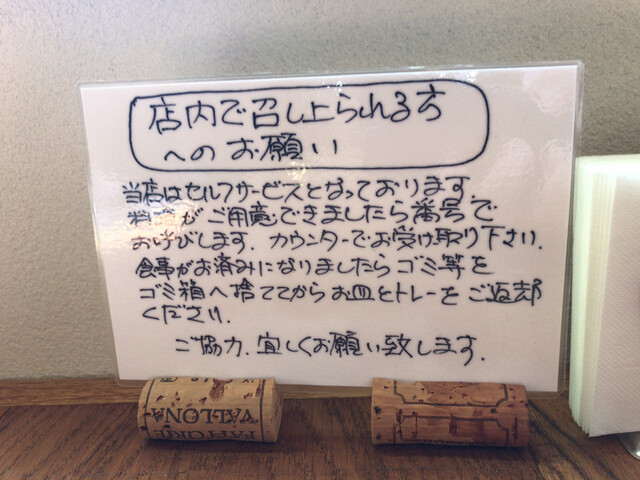 店内で召し上られる方
へのお願い
当店はセルフサービスとなっております
料理がご用意できましたら番号で
お呼びします. カウンターでお受け取り下さい.
食事がお済みになりましたらゴミ等を
ゴミ箱へ捨ててからお皿とトレーをご返却
ください.
ご協力.宜しくお願い致します.